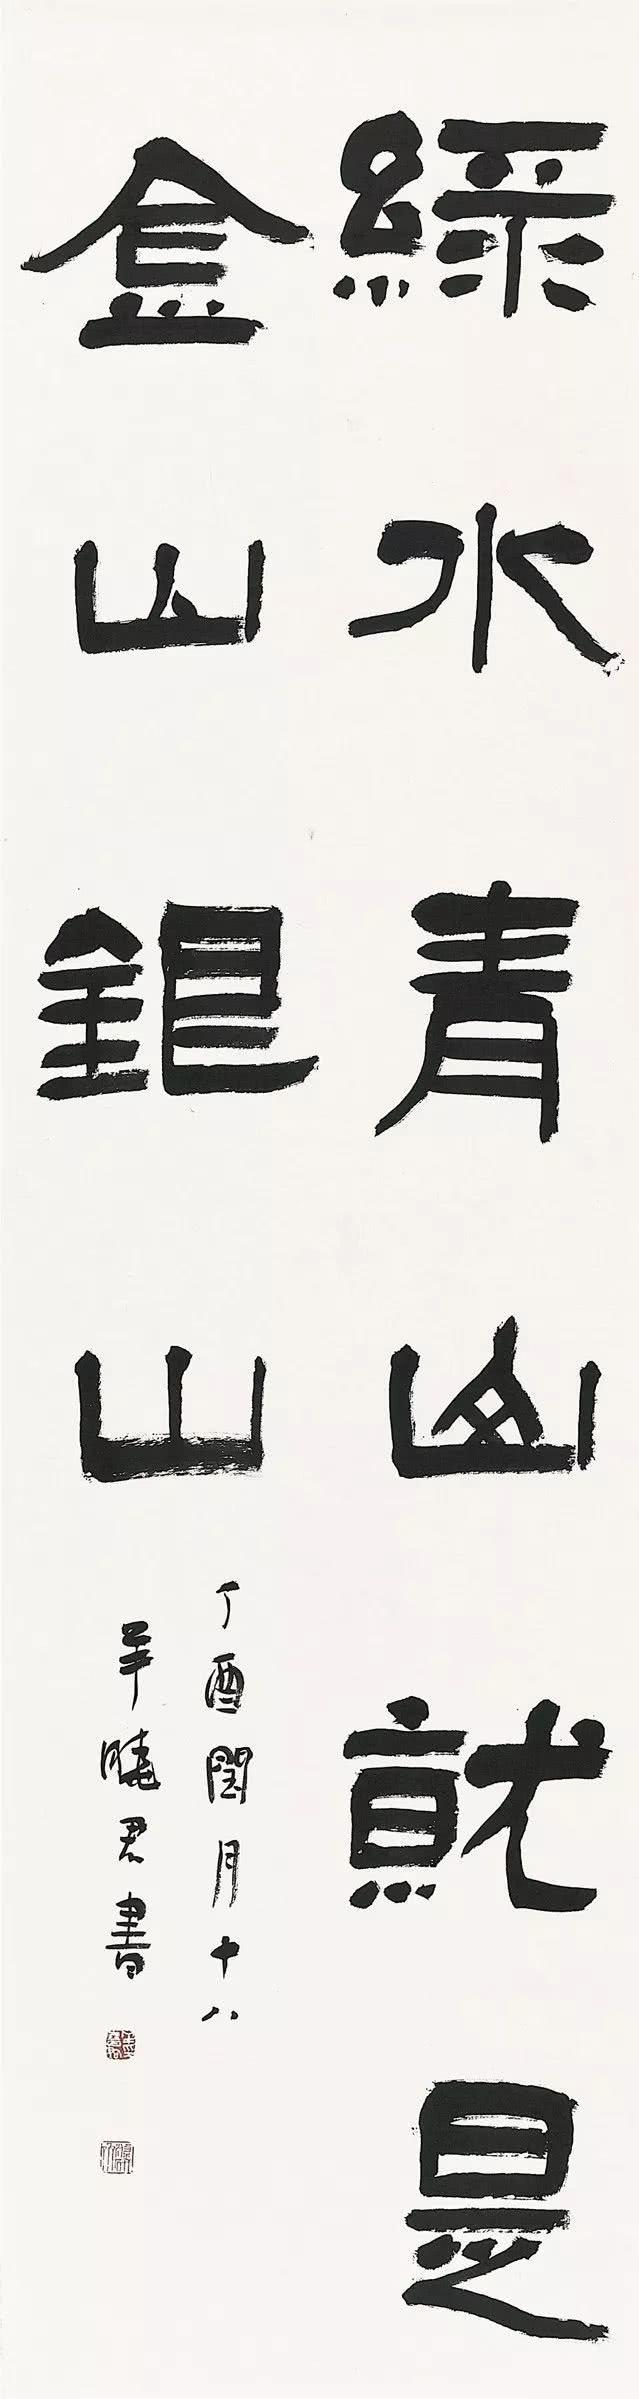 綠水青山就是
金山銀山
丁酉閏月十八
羊曉君書